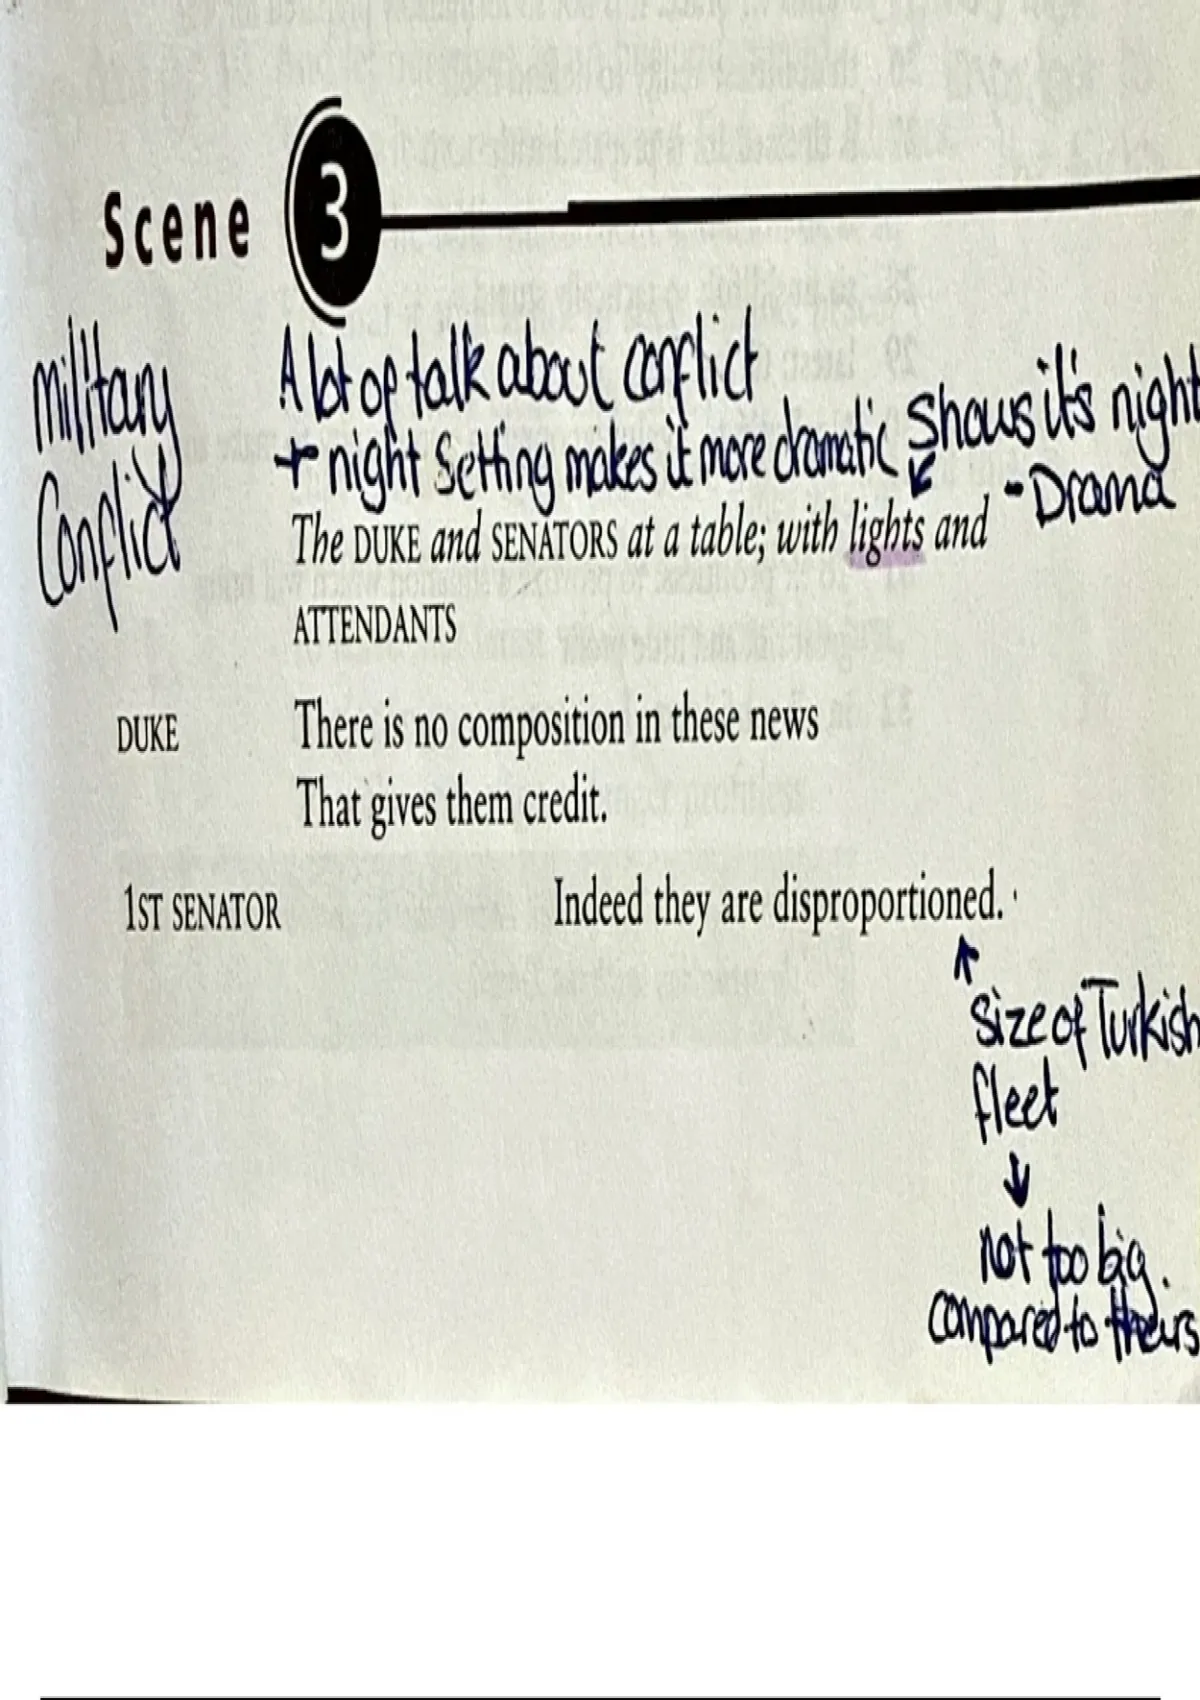 Scene 3
Military
Conflict
A lot of talk about conflict
+ night Setting makes it more dramatic
Shows it's night
- Drama
The DUKE and SENATORS at a table; with lights and
ATTENDANTS
DUKE There is no composition in these news
That gives them credit.
1ST SENATOR Indeed they are disproportioned.
size of Turkish
fleet
not too big
compared to theirs